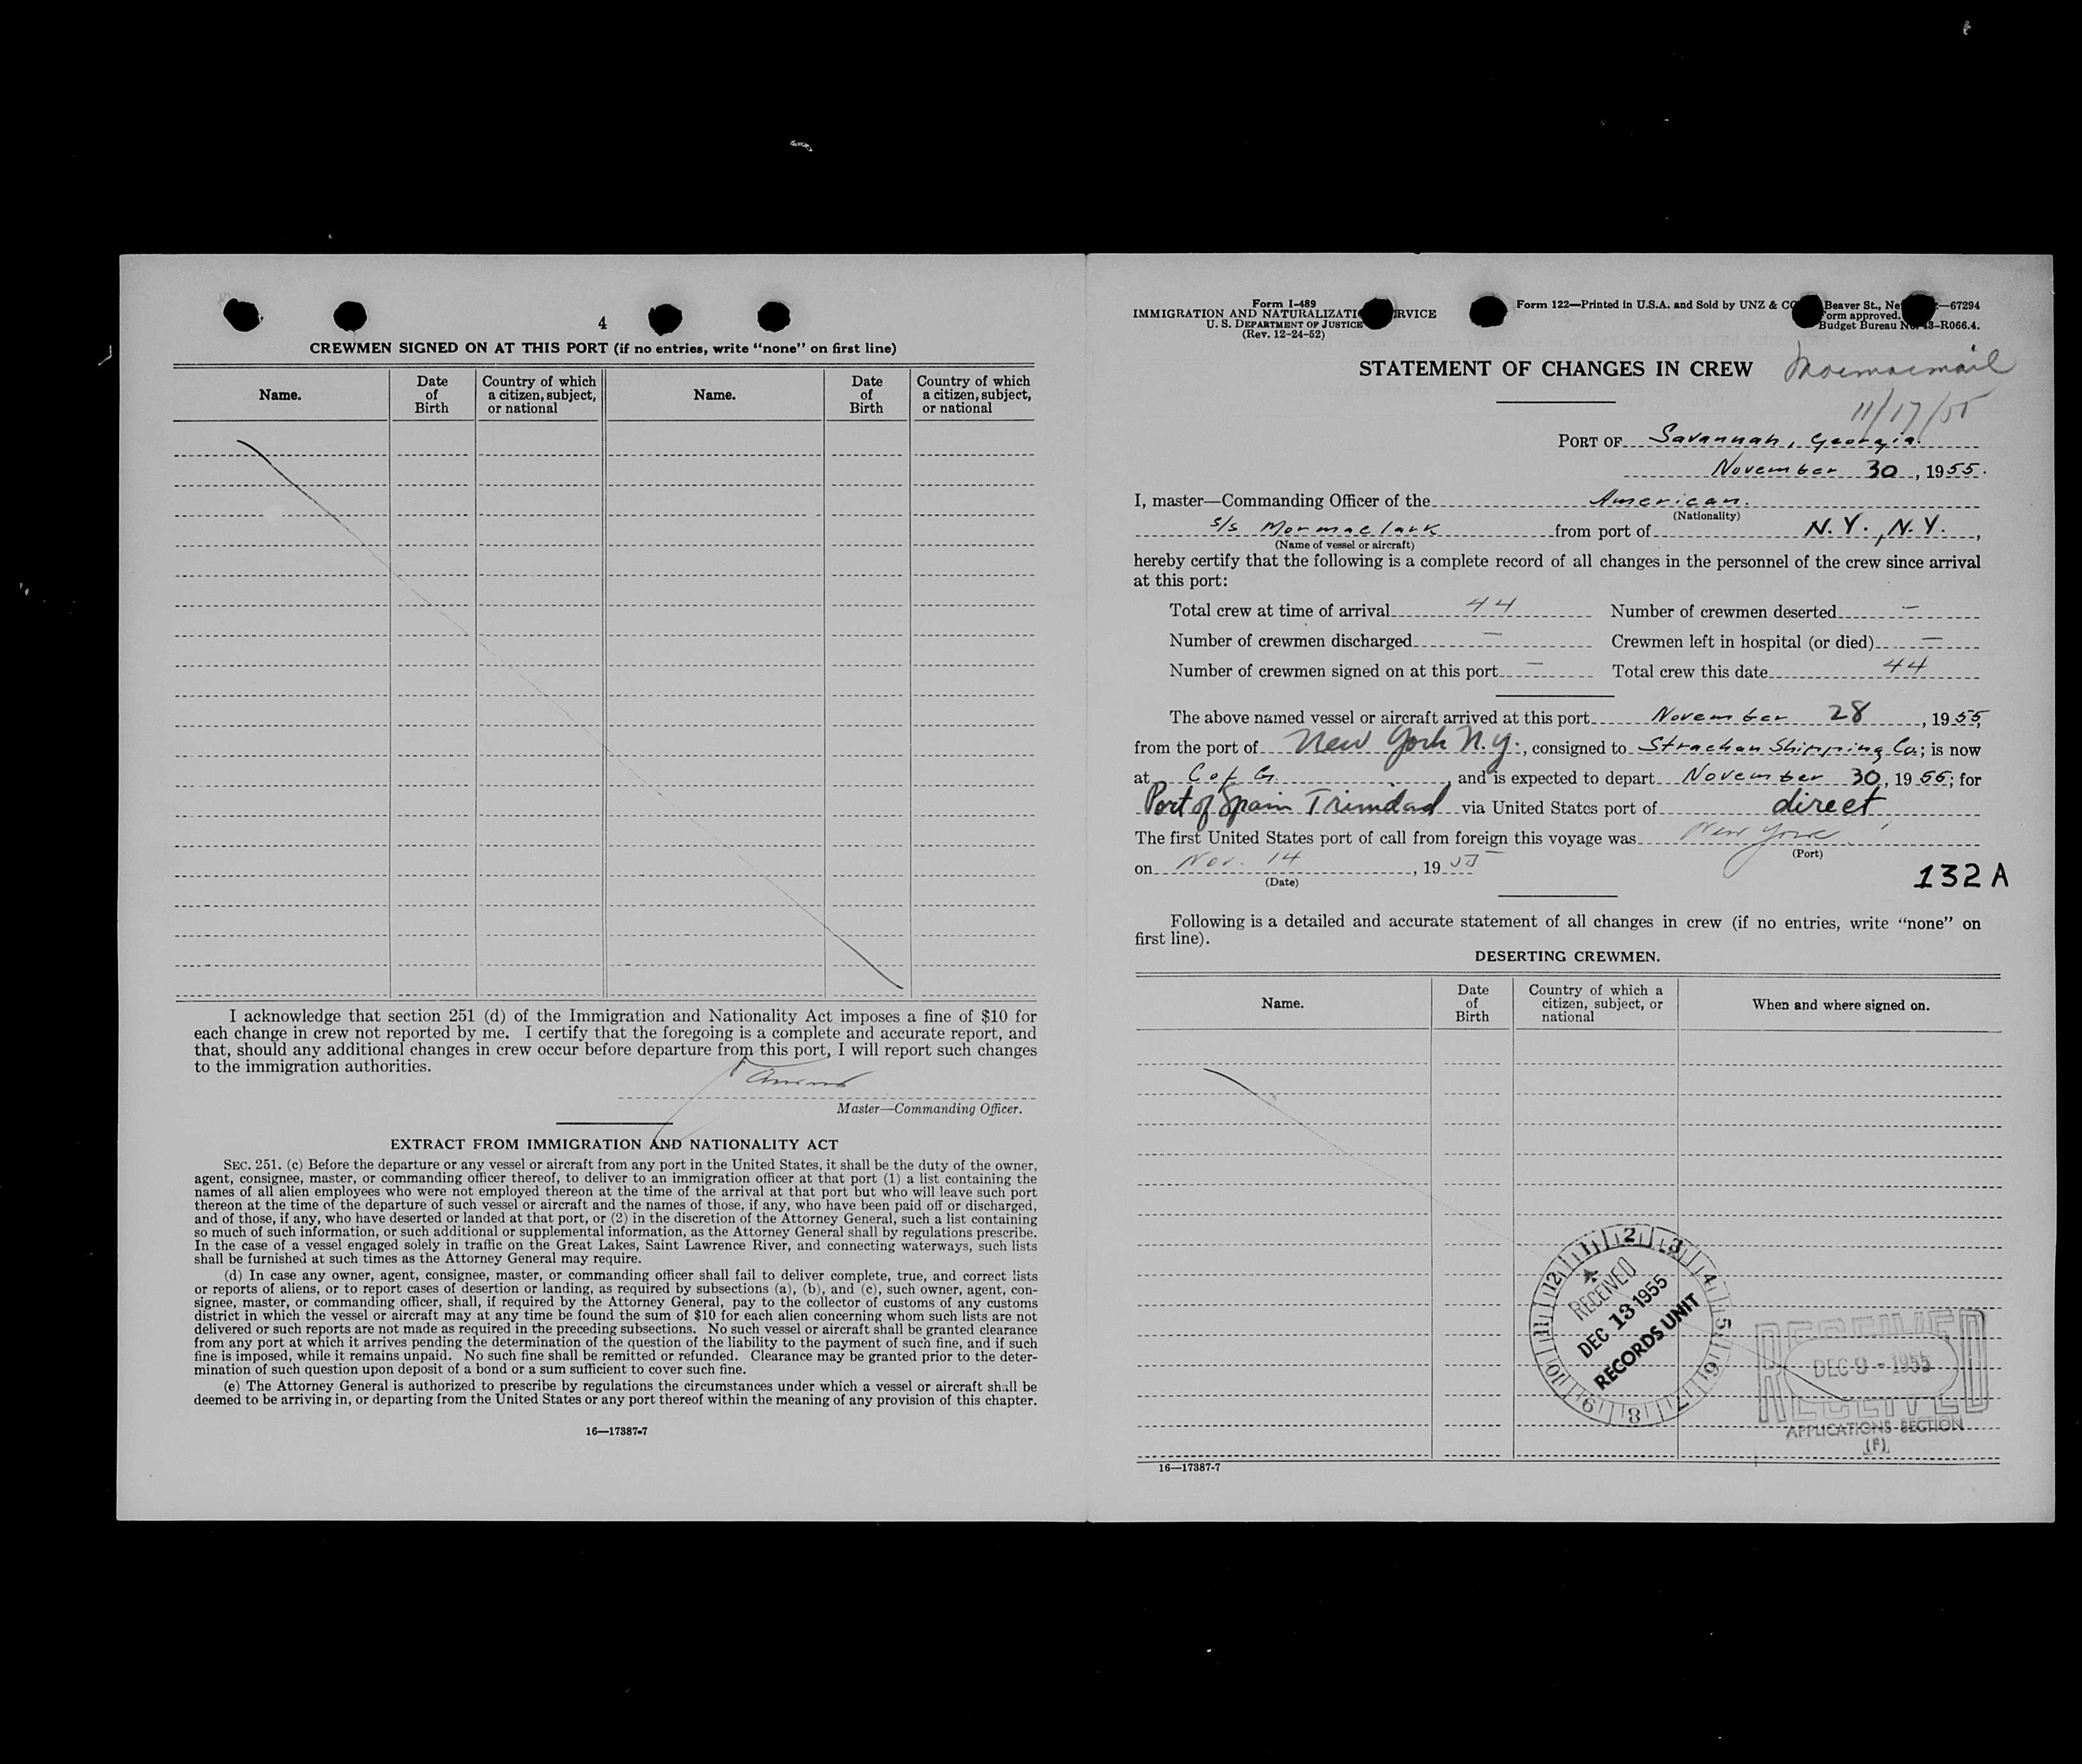 4
CREWMEN SIGNED ON AT THIS PORT (if no entries, write “none” on first line)
Name.
Date of Birth
Country of which a citizen, subject, or national
Name.
Date of Birth
Country of which a citizen, subject, or national
I acknowledge that section 251 (d) of the Immigration and Nationality Act imposes a fine of $10 for
each change in crew not reported by me. I certify that the foregoing is a complete and accurate report, and
that, should any additional changes in crew occur before departure from this port, I will report such changes
to the immigration authorities.
Master—Commanding Officer.
EXTRACT FROM IMMIGRATION AND NATIONALITY ACT
SEC. 251. (c) Before the departure or any vessel or aircraft from any port in the United States, it shall be the duty of the owner,
agent, consignee, master, or commanding officer thereof, to deliver to an immigration officer at that port (1) a list containing the
names of all alien employees who were not employed thereon at the time of the arrival at that port but who will leave such port
thereon at the time of the departure of such vessel or aircraft and the names of those, if any, who have been paid off or discharged,
and of those, if any, who have deserted or landed at that port, or (2) in the discretion of the Attorney General, such a list containing
so much of such information, or such additional or supplemental information, as the Attorney General shall by regulations prescribe.
In the case of a vessel engaged solely in traffic on the Great Lakes, Saint Lawrence River, and connecting waterways, such lists
shall be furnished at such times as the Attorney General may require.
(d) In case any owner, agent, consignee, master, or commanding officer shall fail to deliver complete, true, and correct lists
or reports of aliens, or to report cases of desertion or landing, as required by subsections (a), (b), and (c), such owner, agent, con-
signee, master, or commanding officer, shall, if required by the Attorney General, pay to the collector of customs of any customs
district in which the vessel or aircraft may at any time be found the sum of $10 for each alien concerning whom such lists are not
delivered or such reports are not made as required in the preceding subsections. No such vessel or aircraft shall be granted clearance
from any port at which it arrives pending the determination of the question of the liability to the payment of such fine, and if such
fine is imposed, while it remains unpaid. No such fine shall be remitted or refunded. Clearance may be granted prior to the deter-
mination of such question upon deposit of a bond or a sum sufficient to cover such fine.
(e) The Attorney General is authorized to prescribe by regulations the circumstances under which a vessel or aircraft shall be
deemed to be arriving in, or departing from the United States or any port thereof within the meaning of any provision of this chapter.
16—17387-7
Form I-489
IMMIGRATION AND NATURALIZATI RVICE
U. S. DEPARTMENT OF JUSTICE
(Rev. 12-24-52)
Form 122—Printed in U.S.A. and Sold by UNZ & CO Beaver St., Ne —67294
orm approved.
Budget Bureau N 43-R066.4.
STATEMENT OF CHANGES IN CREW
Mormacmail
11/17/55
PORT OF Savannah, Georgia.
November 30, 1955.
I, master—Commanding Officer of the American.
(Nationality)
s/s Mormaclark from port of N.Y., N.Y.,
(Name of vessel or aircraft)
hereby certify that the following is a complete record of all changes in the personnel of the crew since arrival
at this port:
Total crew at time of arrival 44 Number of crewmen deserted —
Number of crewmen discharged — Crewmen left in hospital (or died) —
Number of crewmen signed on at this port — Total crew this date 44
The above named vessel or aircraft arrived at this port November 28, 1955,
from the port of New York N.Y., consigned to Strachan Shipping Co.; is now
at C of G. and is expected to depart November 30, 1955; for
Port of Spain Trinidad via United States port of direct
The first United States port of call from foreign this voyage was New York
(Port)
on Nov. 14, 1955
(Date)
132 A
Following is a detailed and accurate statement of all changes in crew (if no entries, write “none” on
first line).
DESERTING CREWMEN.
Name.
Date of Birth
Country of which a citizen, subject, or national
When and where signed on.
1 2 3 4 5 6 7 8 9 10 11 12
RECEIVED
DEC 13 1955
RECORDS UNIT
RECEIVED
DEC 9 - 1955
RECEIVED
APPLICATIONS SECTION
(F)
16—17387-7